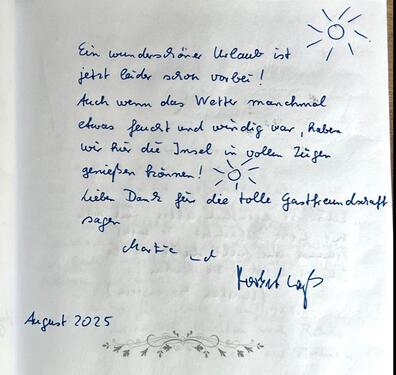 Ein wunderschöner Urlaub ist
jetzt leider schon vorbei!
Auch wenn das Wetter manchmal
etwas feucht und windig war, haben
wir hür die Insel in vollen Zügen
genießen können!
Lieben Dank für die tolle Gastfreundschaft
sagen
August 2025